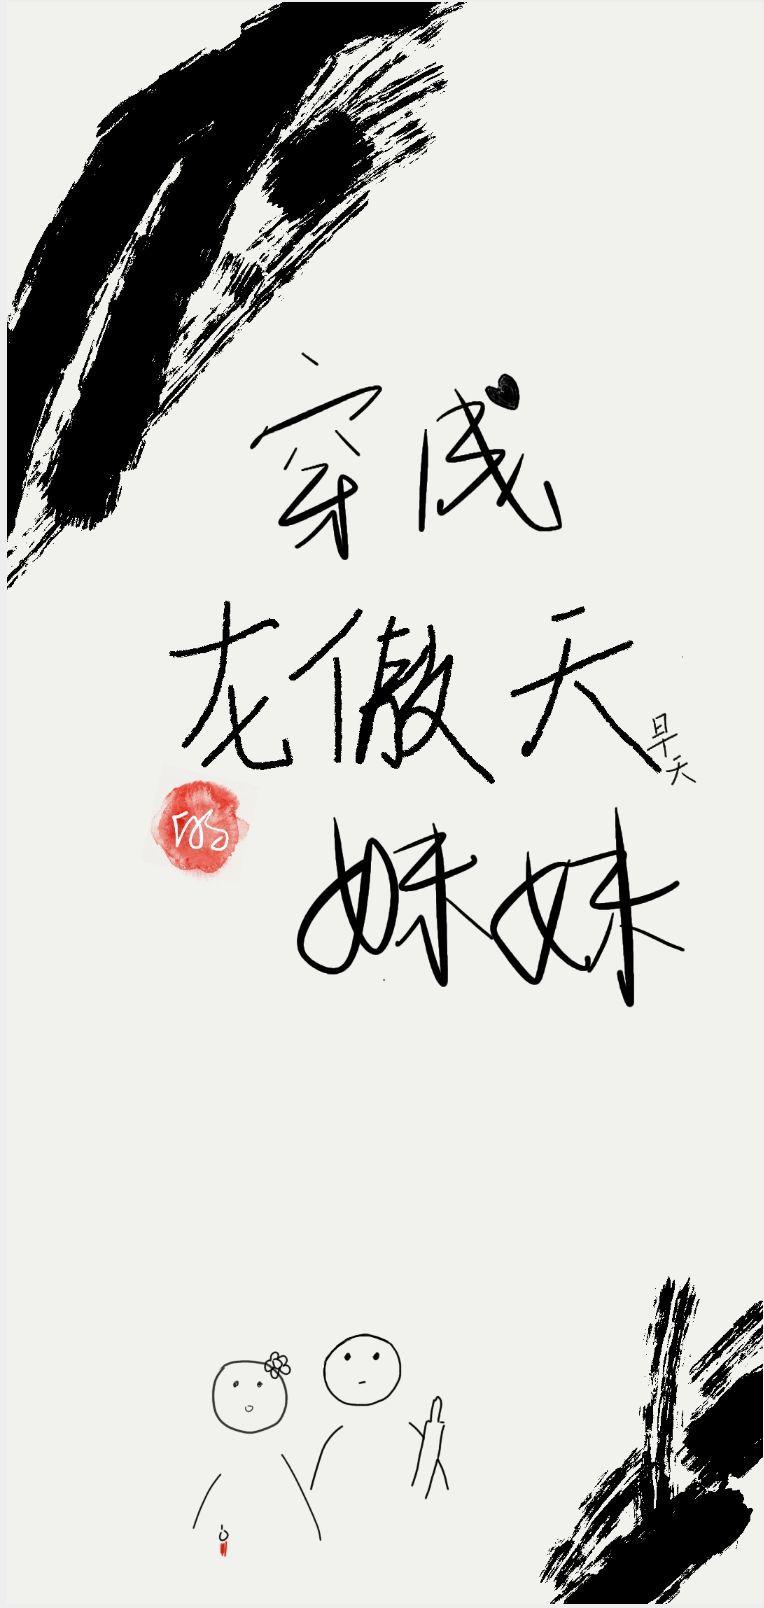 穿成
龙傲天
早天
妹妹